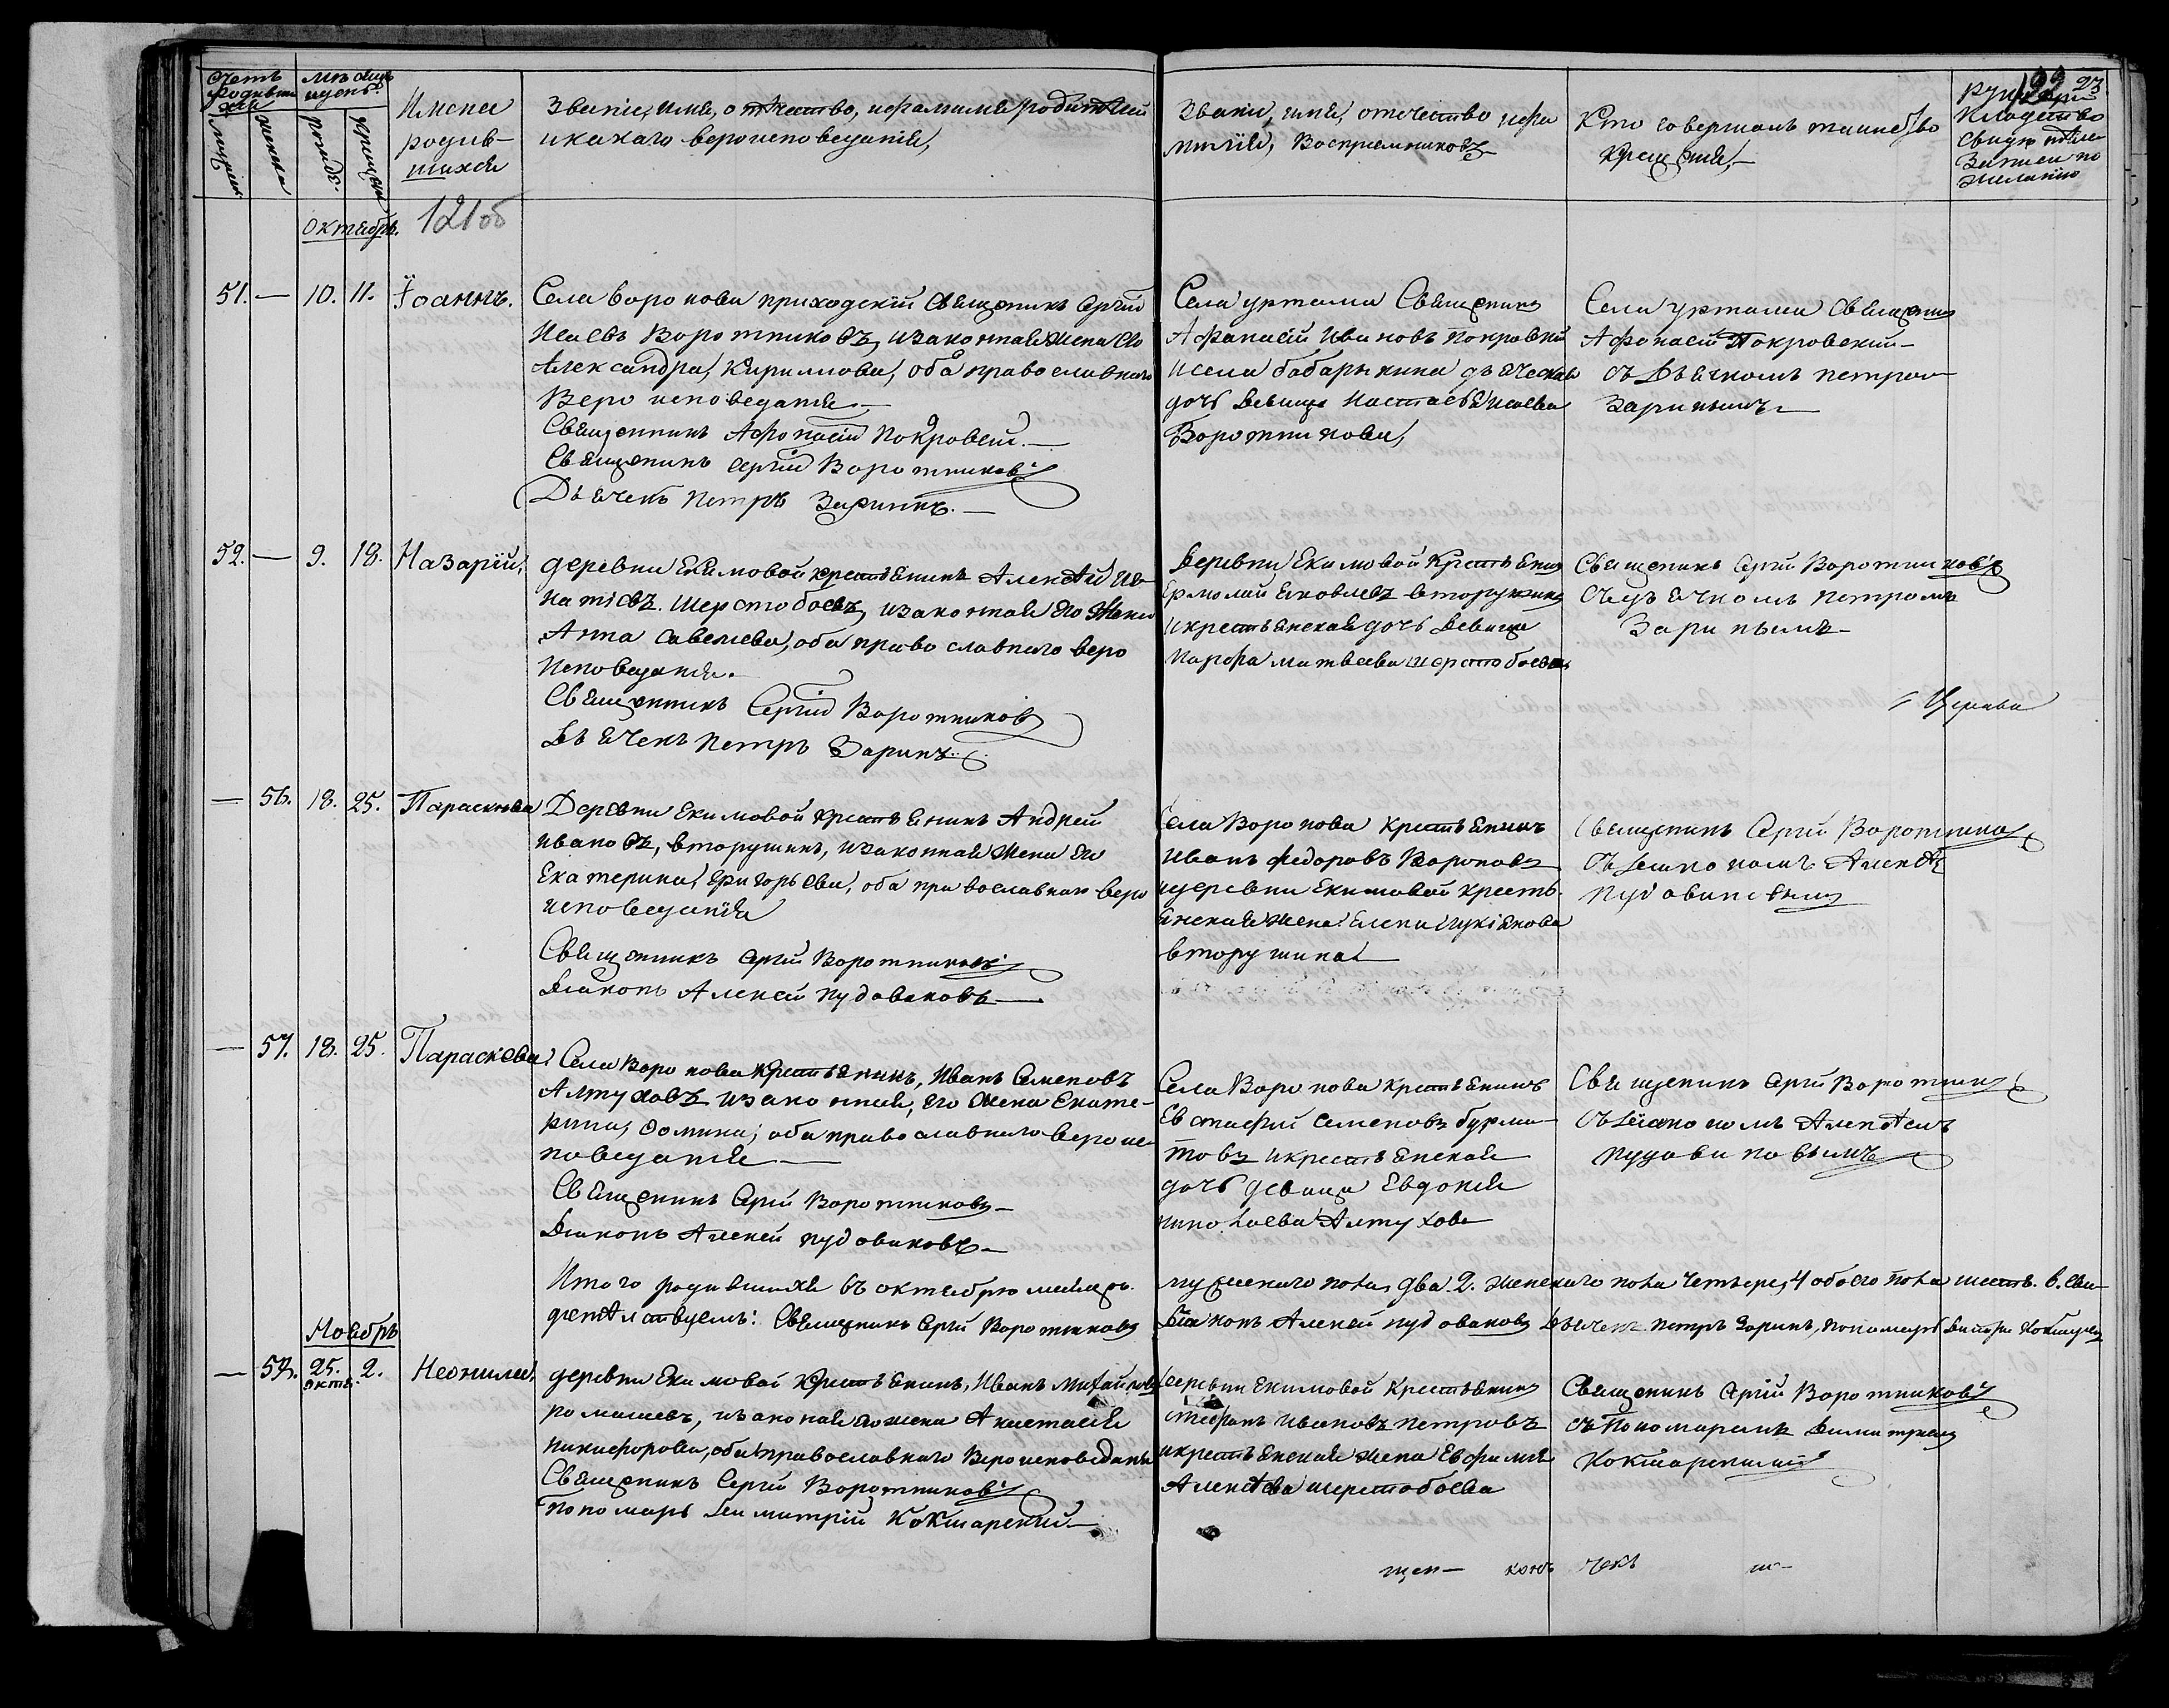 Счетъ родившихся
мужеска
женска
Мѣсяцъ и день
рожде.
крещения
Имена
родив-
шихся
Званіе, имя, отчество, и фамилия родителей
и какаго вероисповеданія,
Звание, имя, отечество и фа
милія, Восприемниковъ
Кто совершалъ таинство
крещения,
122 23
Рукопри
кладство
свидетеле
Записи по
желанію
Октябрь.
121об
51. — 10. 11. Іоаннъ.
Села воронова приходскій Священикъ Сергій
Исаевъ Воротниковъ, изаконная жена его
Александра, Кирилова, оба православнаго
Вероисповедания —
Священникъ Афонасій Покровски. —
Священикъ Сергій Воротниковъ
Дьячекъ Петръ Заринъ. —
Села уртама Священикъ
Афанасій Ивановъ Покровскій
исела бабарыкина дьяческая
дочь Девица Настасья Исаева
Воротникова,
Села уртама Священикъ
Афонасій Покровский —
съ Дьячкомъ петром
Зариным —
52. — 9. 18. Назарій,
деревни Екимовой крестьянинъ Алексей Иг-
натіевъ. Шерстобоевъ, изаконная его Жена
Анна Савелиева, оба православнаго веро
исповедания.
Священникъ Сергій Воротниковъ
Дьячекъ Петръ Заринъ.
Деревни Екимовой Крестьянинъ
Ермолай Яковлевъ вторушинъ
икрестьянская дочь Девица
Марфа матвеева шерстобоева
Священикъ Сергій Воротниковъ
Съ дьячкомъ Петромъ
Зариным —
— 56. 18. 25. Параскева
Деревни Екимовой крестьянинъ Андрей
ивановъ, вторушинъ, изаконная Жена его
Екатерина, григорьева, оба православнаго веро
исповедания
Священникъ Сергій Воротниковъ
Диаконъ Алексей пудовиковъ —
Села Воронова крестьянинъ
иванъ федоровъ Вороновъ
идеревни Екимовой кресть-
янская жена Елена лукіянова
вторушина
Священикъ Сергій Воротников
Съ диакономъ Алексе
Пудовиковым
— 57. 18. 25. Параскева
Села Воронова Крестьянинъ, Иванъ Семеновъ
Алтуховъ изаконная, его Жена Екате-
рина, Фомина, оба православнаго вероис
поведания —
Священикъ Сергій Воротниковъ —
Диаконъ Алексей пудовиковъ —
Села Воронова крестьянинъ
Евстафий Семеновъ бурма-
товъ икрестьянская
дочь девица Евдокия
николаева Алтухова
Священикъ Сергій Воротник
Съ Діакономъ Алексеемъ
пудовиковымъ
Итого родившихся въ октябре месяце мужескаго пола два 2. женскаго пола четыре, 4 обоего пола шесть. 6. сви-
детельствуемъ: Священикъ Сергій Воротниковъ Диаконъ Алексей пудовиковъ Дьячекъ петръ Заринъ, пономарь Димитри Кокшарск
Ноябрь
— 58. 25. октя. 2. Неонила,
деревни Екимовой Крестьянинъ, Иванъ Михайловъ
ромашевъ, изаконая его жена Анастасия
никифорова, оба православнаго Вероисповедания
Священикъ Сергій Воротниковъ
Пономарь Димитрій Кокшарский —
деревни Екимовой Крестьянинъ
стефанъ ивановъ петровъ
икрестьянская жена Евфимия
Алексеева шерстобоева
Священикъ Сергій Воротниковъ
съ Пономаремъ Димитрием
Кокшарским
щен — конъ чекъ м —